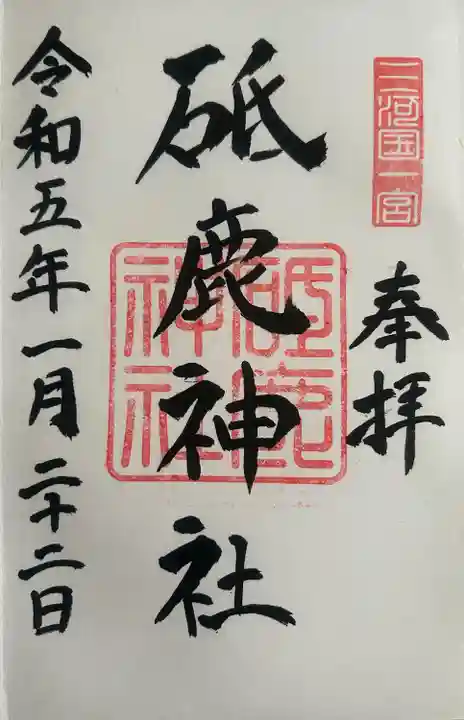 三河国一宮
奉拝
砥鹿神社
砥鹿
神社
令和五年一月二十二日